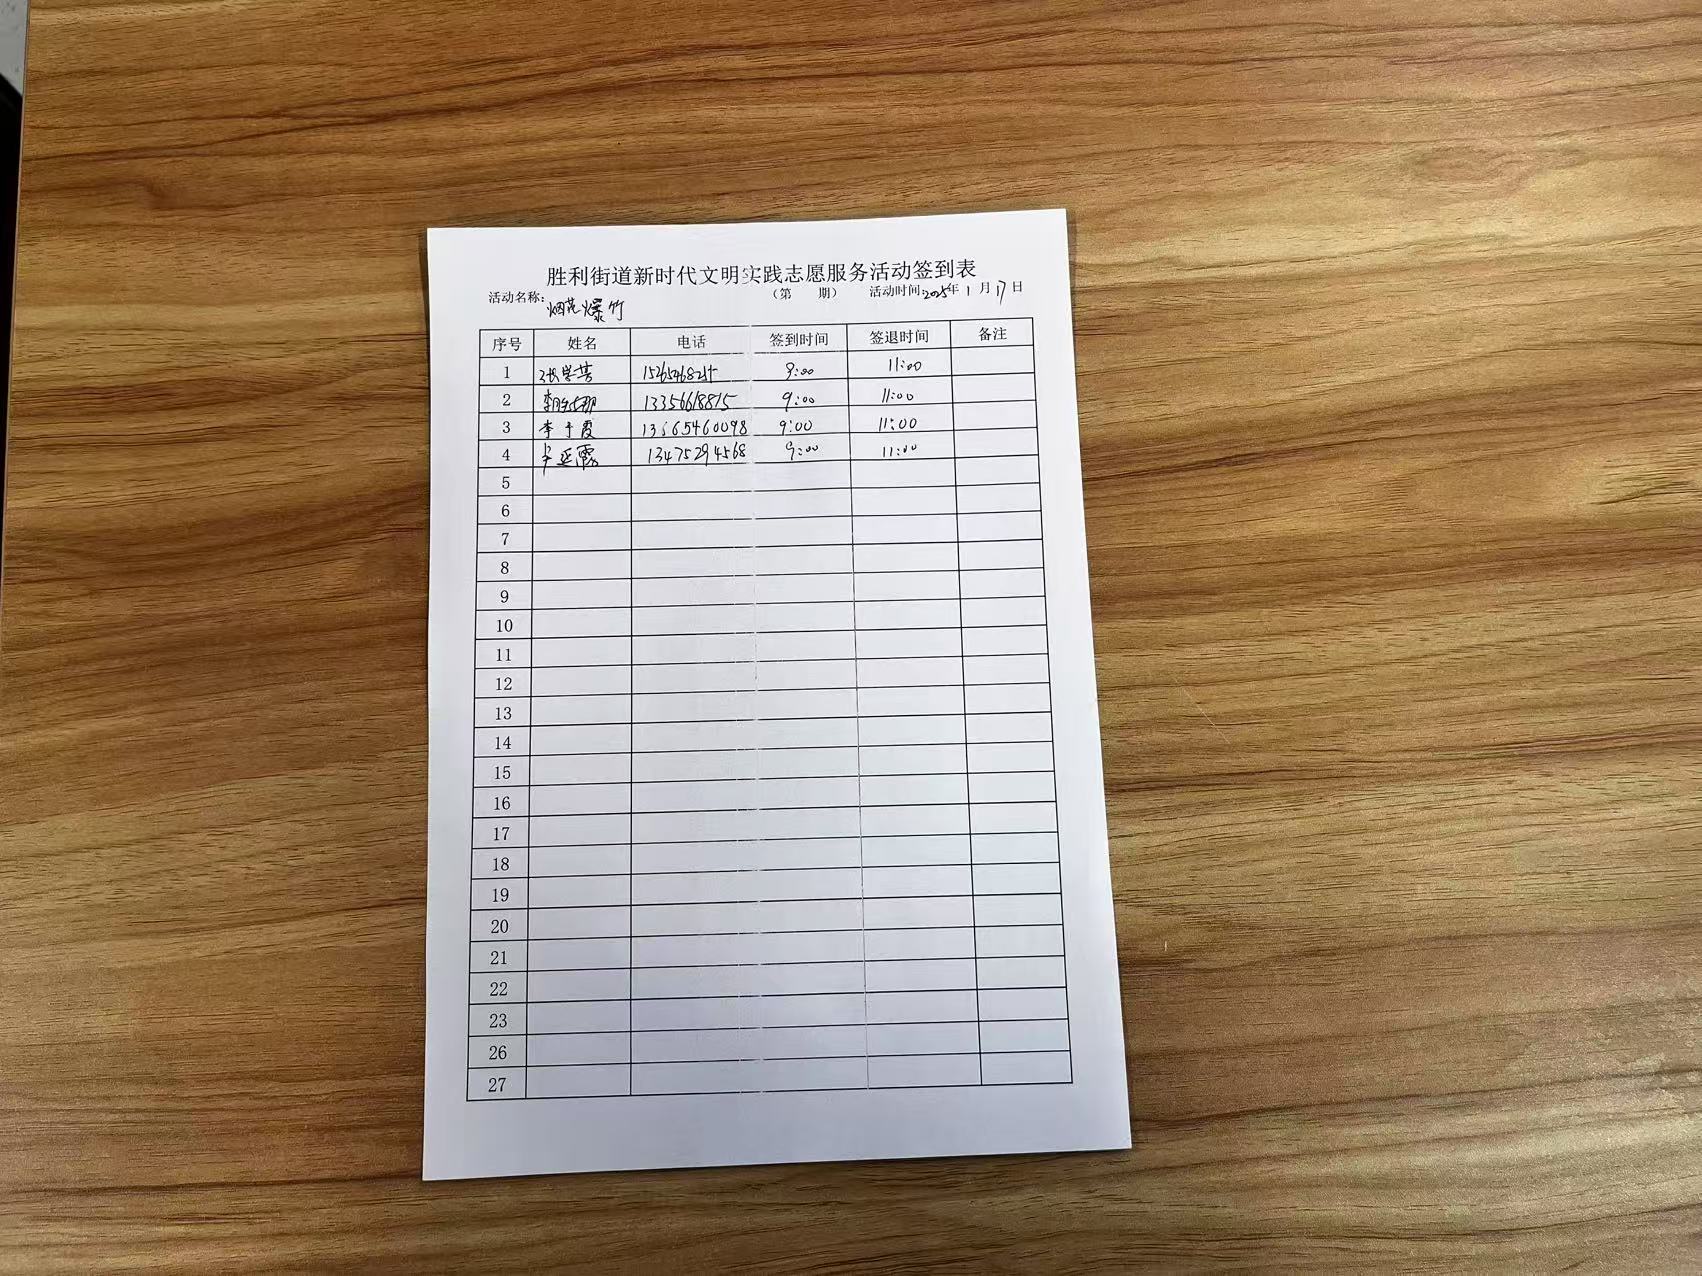 胜利街道新时代文明实践志愿服务活动签到表
活动名称：烟花爆竹 （第 期） 活动时间：2025年1月17日
序号 姓名 电话 签到时间 签退时间 备注
1 9:00 11:00
2 13356618815 9:00 11:00
3 李于霞 13665460098 9:00 11:00
4 13475294568 9:00 11:00
5
6
7
8
9
10
11
12
13
14
15
16
17
18
19
20
21
22
23
26
27